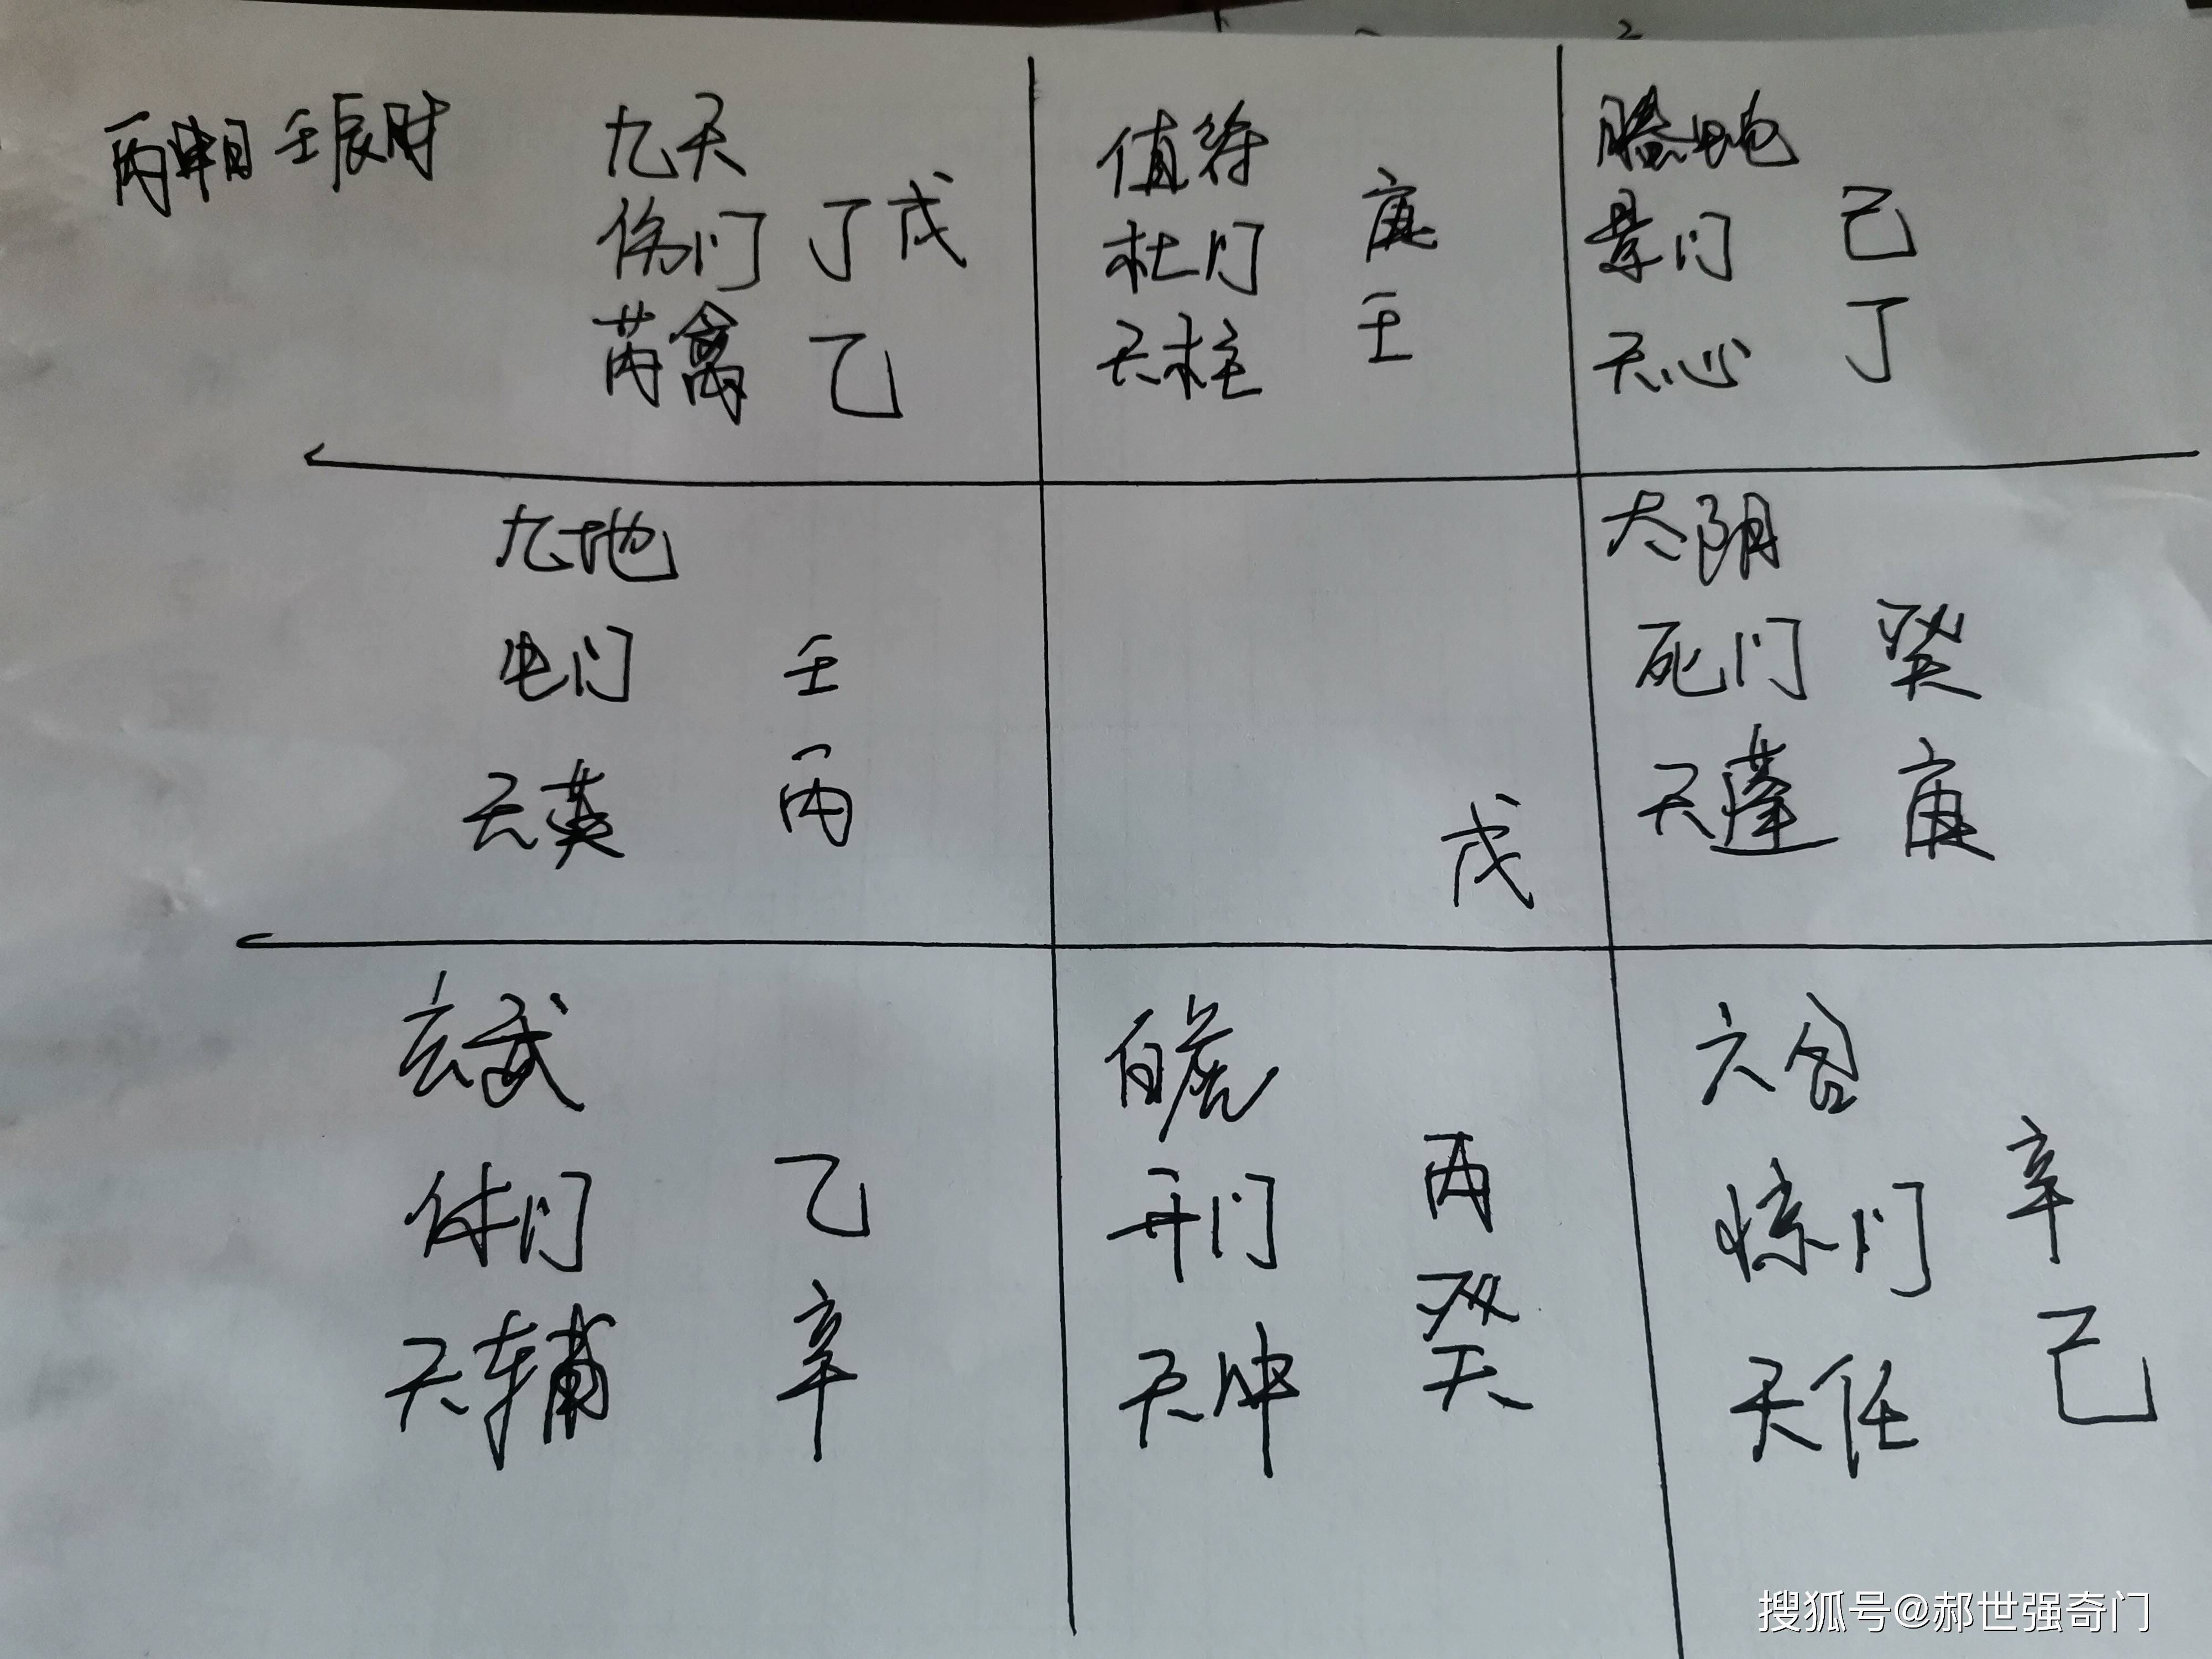 丙申日 壬辰时
九天
伤门 丁戊
芮禽 乙
值符
杜门 庚
天柱 壬
腾蛇
景门 己
天心 丁
九地
生门 壬
天英 丙
戊
太阴
死门 癸
天蓬 庚
玄武
休门 乙
天辅 辛
白虎
开门 丙
天冲 癸
六合
惊门 辛
天任 己
搜狐号@郝世强奇门